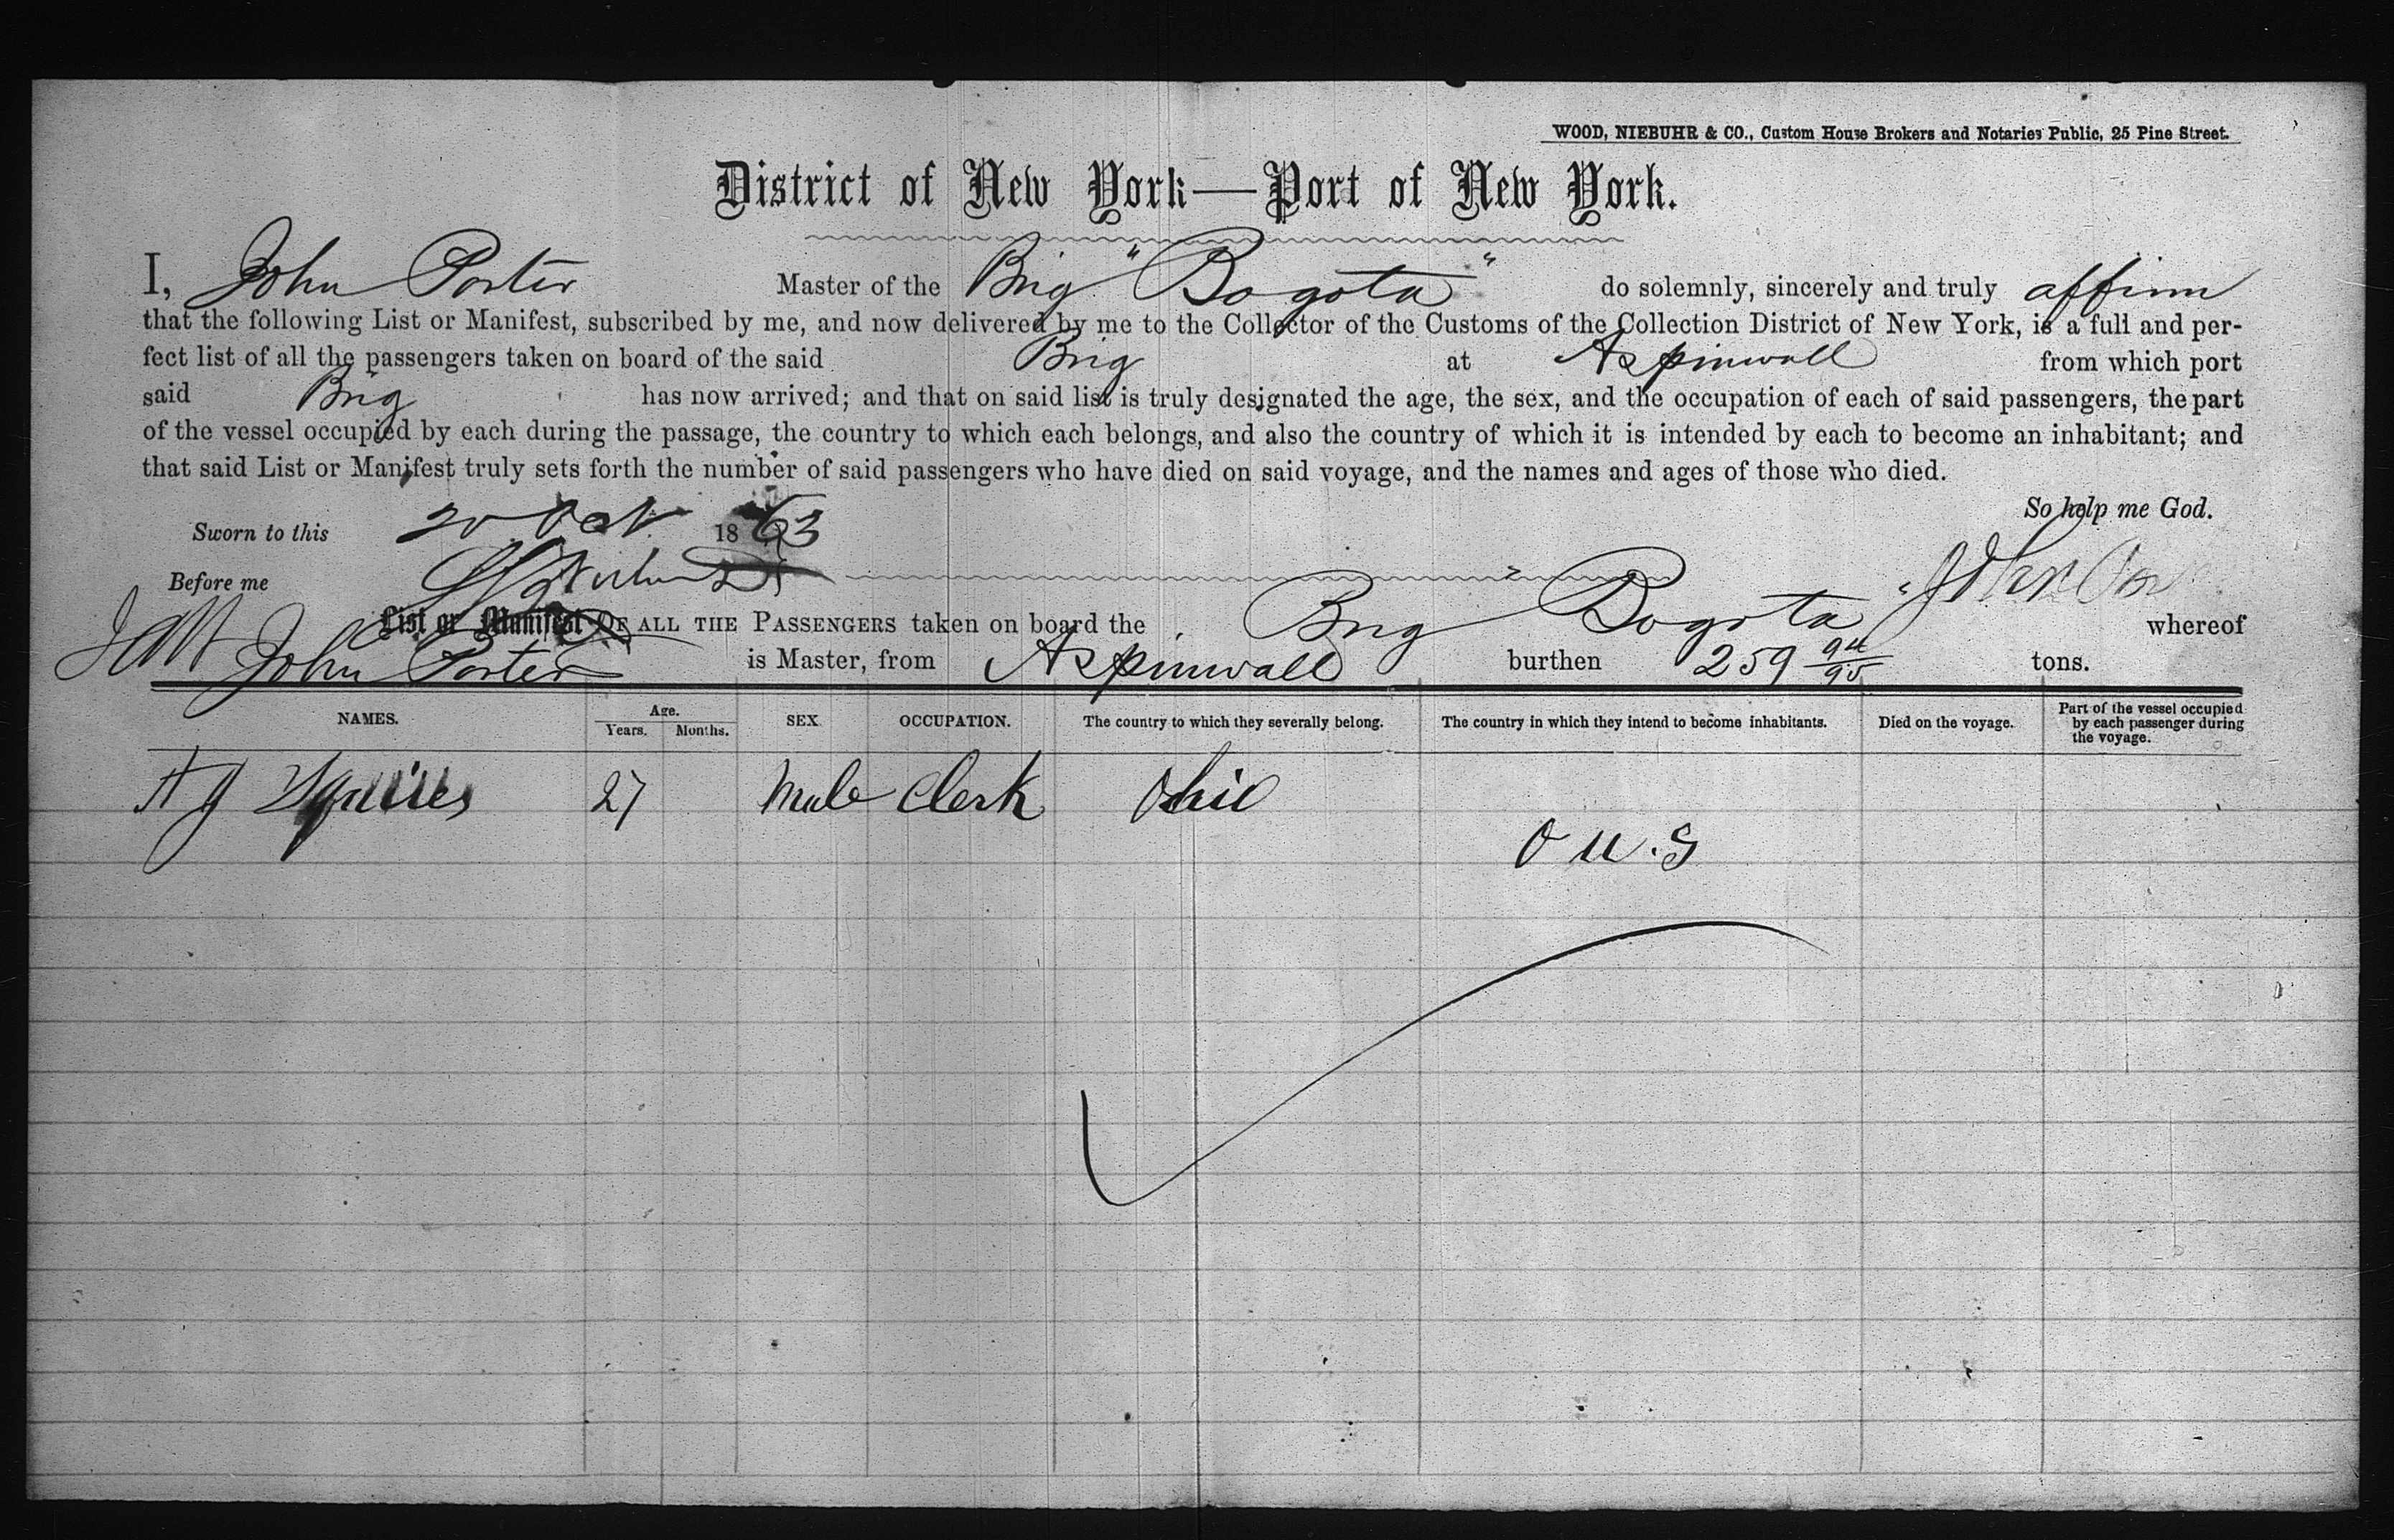 WOOD, NIEBUHR & CO., Custom House Brokers and Notaries Public, 25 Pine Street.
District of New York—Port of New York.
I, John Porter Master of the Brig "Bogota" do solemnly, sincerely and truly affirm
that the following List or Manifest, subscribed by me, and now delivered by me to the Collector of the Customs of the Collection District of New York, is a full and per-
fect list of all the passengers taken on board of the said Brig at Aspinwall from which port
said Brig has now arrived; and that on said list is truly designated the age, the sex, and the occupation of each of said passengers, the part
of the vessel occupied by each during the passage, the country to which each belongs, and also the country of which it is intended by each to become an inhabitant; and
that said List or Manifest truly sets forth the number of said passengers who have died on said voyage, and the names and ages of those who died.
So help me God.
Sworn to this 20 Oct 1863
Before me John
List or Manifest OF ALL THE PASSENGERS taken on board the Brig "Bogota" whereof
John Porter is Master, from Aspinwall burthen 259 94/95 tons.
NAMES. Age. Years. Months. SEX OCCUPATION. The country to which they severally belong. The country in which they intend to become inhabitants. Died on the voyage. Part of the vessel occupied by each passenger during the voyage.
A J Squires 27 Male Clerk Ohio
U.S